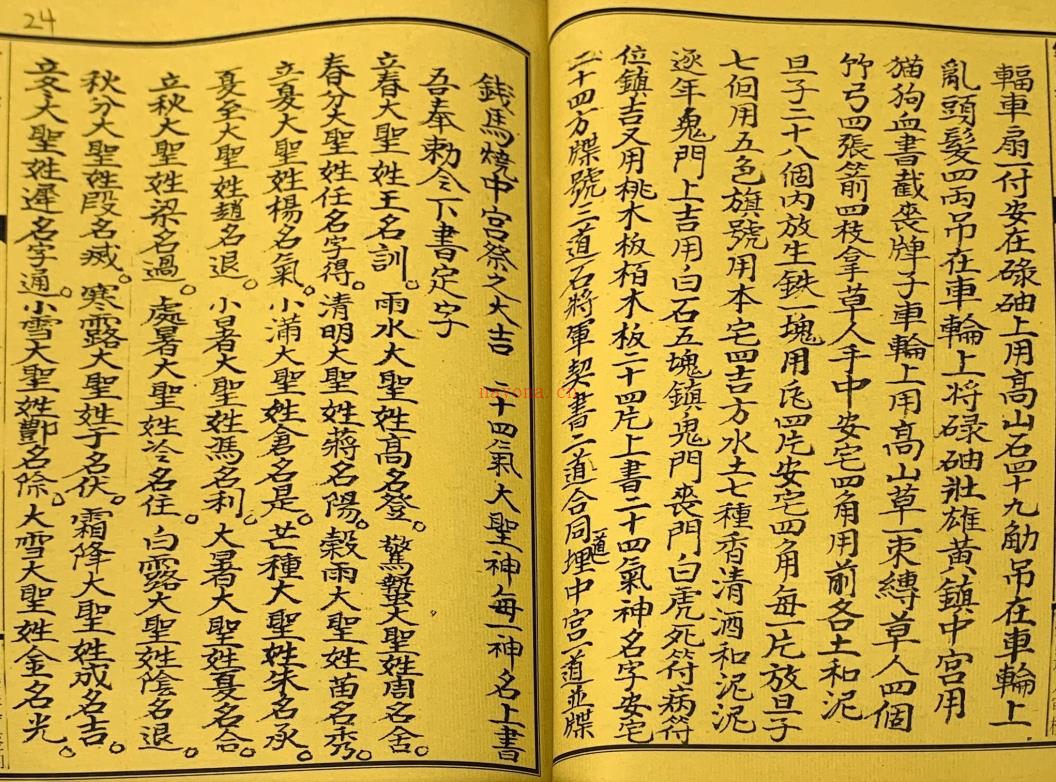 輻車扇一付安在碌砘上用高山石四十九觔吊在車輪上
亂頭髮四両吊在車輪上将碌砘壯雄黃鎮中宮用
猫狗血書截喪牌子車輪上用高山草一束縛草人四個
竹弓四張箭四枝拿草人手中安宅四角用前各土和泥
旦子二十八個内放生鉄一塊用瓦四片安宅四角每一片放旦子
七個用五色旗號用本宅四吉方水土七種香清酒和泥泥
逐年鬼門上吉用白石五塊鎮鬼門喪門白虎死符病符
位鎮吉又用桃木板栢木板二十四片上書二十四氣神名字安宅
二十四方牒號二道石將軍契書二道合同一道埋中宮一道並牒
錢馬燒中宮祭之大吉 二十四氣大聖神每一神名上書
吾奉勅令下書定字
立春大聖姓王名訓。雨水大聖姓高名登。驚蟄大聖姓周名舍。
春分大聖姓任名字得。清明大聖姓蔣名陽。榖雨大聖姓苗名秀。
立夏大聖姓楊名氣。小滿大聖姓倉名是。芒種大聖姓朱名永。
夏至大聖姓趙名退。小暑大聖姓馮名利。大暑大聖姓夏名合。
立秋大聖姓梁名過。處暑大聖姓冷名住。白露大聖姓陰名退。
秋分大聖姓段名滅。寒露大聖姓于名伏。霜降大聖姓成名吉。
立冬大聖姓遲名字通。小雪大聖姓酆名除。大雪大聖姓金名光。
24
nayona.cn